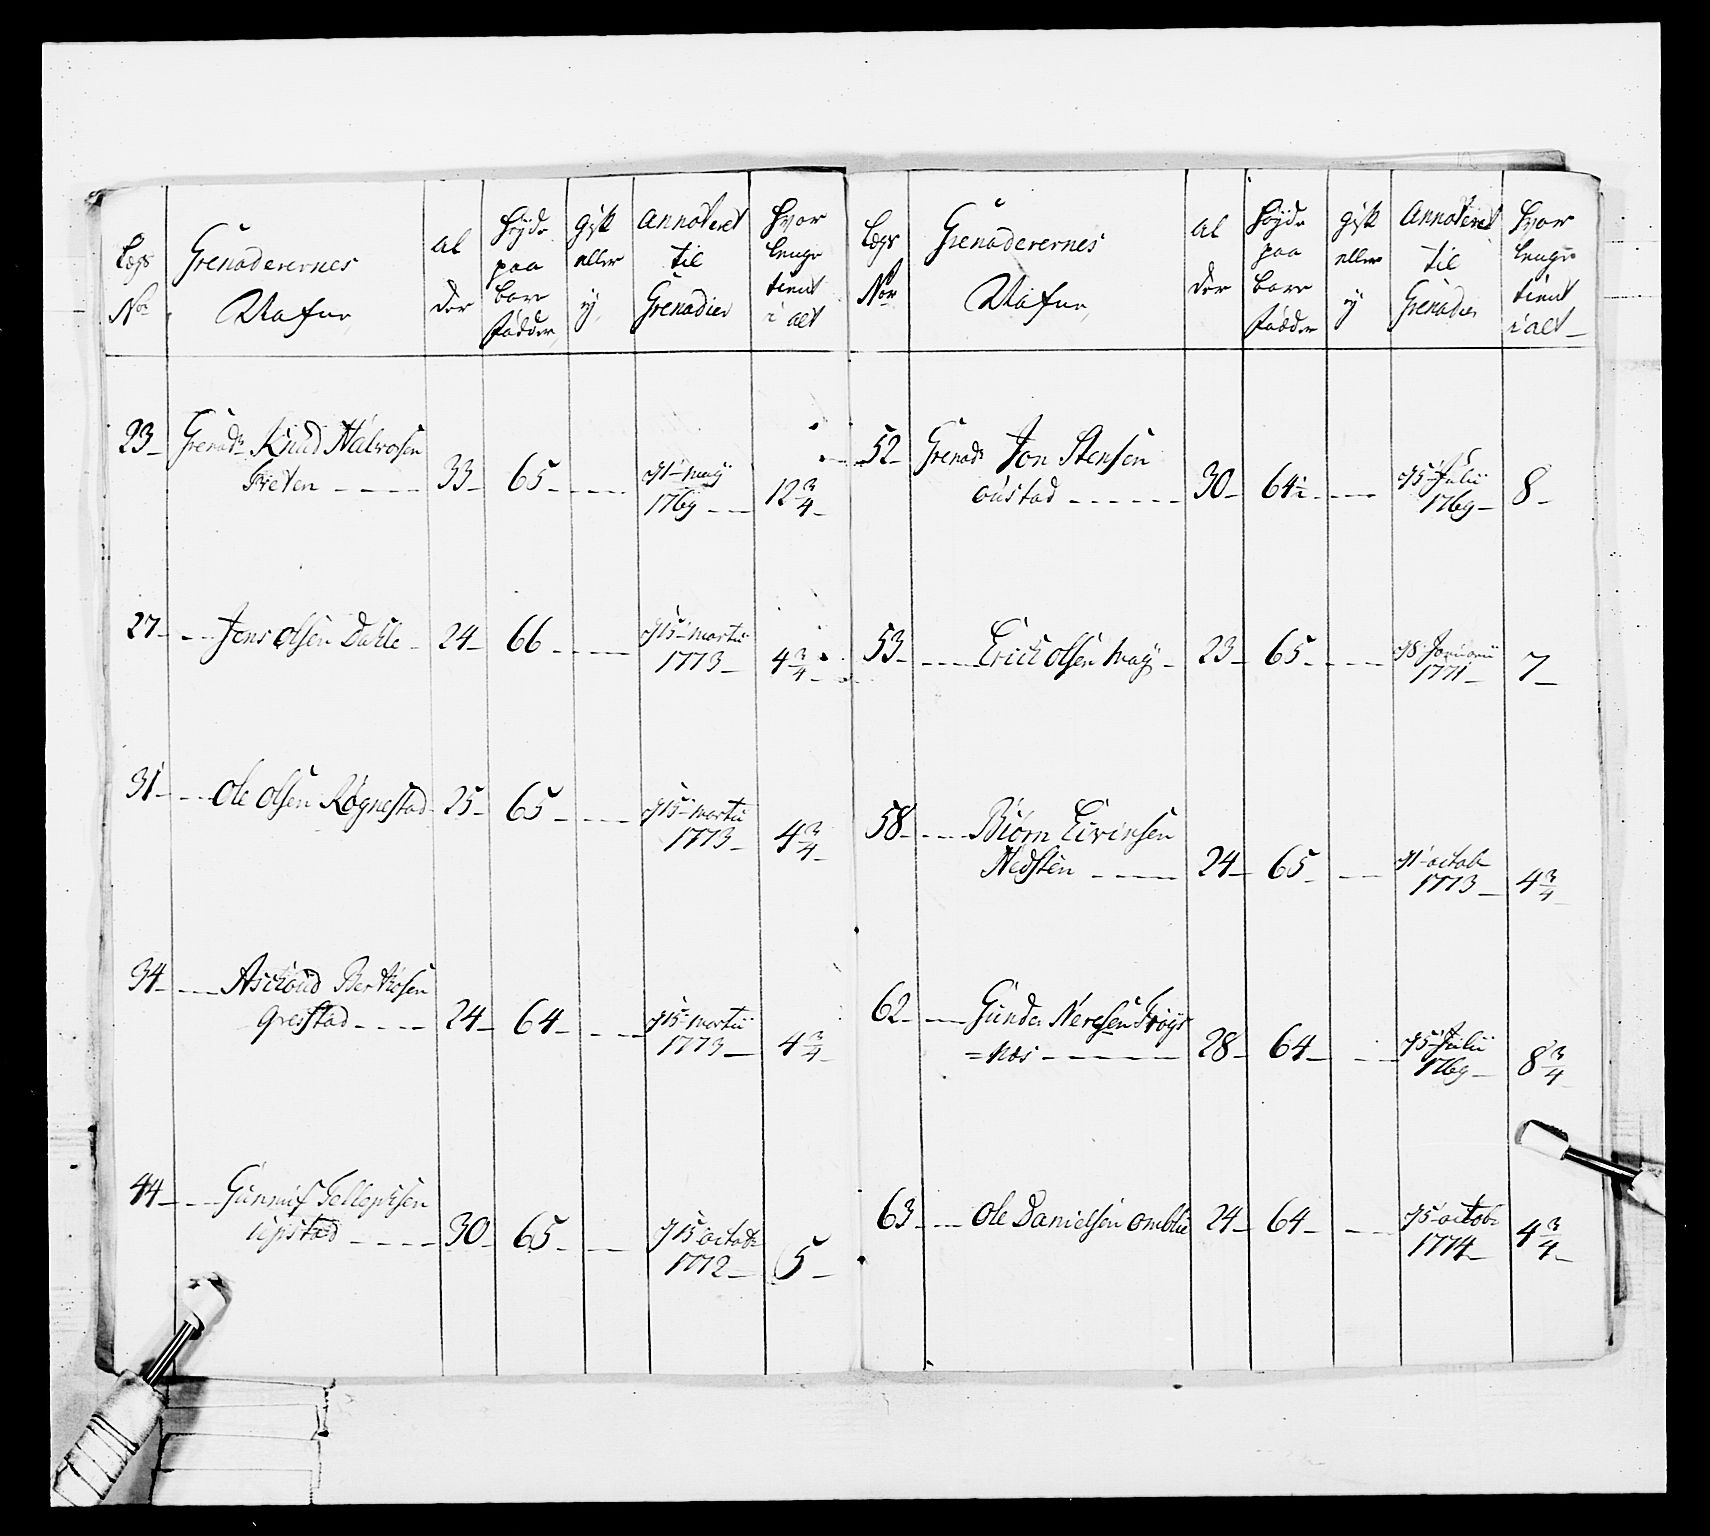 Legs
No
Grenaderernes
Nafne
Al
der
Høyde
paa
bare
Fødder,
gift
eller
ey
Annoteret
til
Grenadier
hvor
lenge
tient
i alt
23 Grenad: Knud Halvosen
Treten 33 65 d 1 May
1769 12 3/4
27 Jens Olsen Dahle 24 66 d 15 Martii
1773 4 3/4
31 Ole Olsen Røgnestad 25 65 d 15 Martii
1773 4 3/4
34 Aschoud Berthosen
Greistad 24 64 d 15 Martii
1773 4 3/4
44 Gunnuf Tellepsen
Upstad 30 65 d 15 octob:
1772 5
Legs
Nor
Grenaderernes
Nafne,
Al
der
Høyde
paa
bare
Fødder
gift
eller
ey
Annoteret
til
Grenadier
hvor
lenge
tient
i alt
52 Grenad: Jon Stensen
oustad 30 64½ d 5 Julii
1769 8
53 Erich Olsen May 23 65 d 8 Januarii
1771 7
58 Biørn Eivinsen
Nedsten 24 65 d 1 octob:
1773 4 3/4
62 Gunder Neresen Trøgs
=næs 28 64 d 5 Julii
1769 8 3/4
63 Ole Danielsen omblie 24 64 d 5 octob:
1774 4 3/4